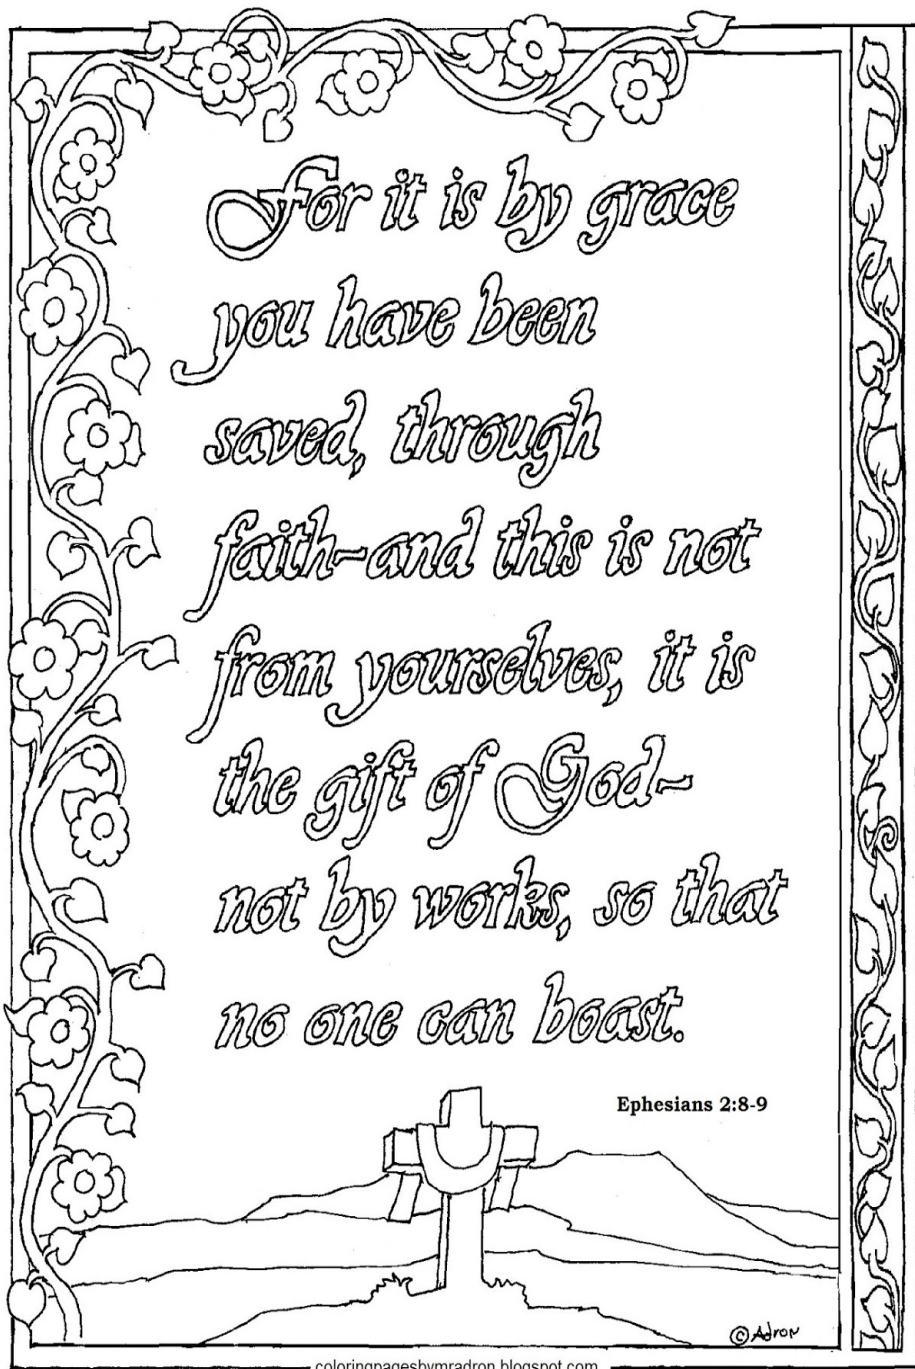 For it is by grace
you have been
saved, through
faith-and this is not
from yourselves, it is
the gift of God-
not by works, so that
no one can boast.
Ephesians 2:8-9
© Adron
coloringpagesbymradron.blogspot.com